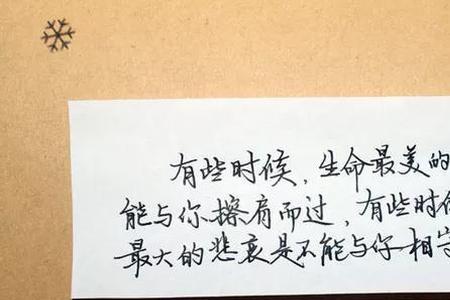 有些时候，生命最美的
能与你擦肩而过，有些时
最大的悲哀是不能与你相